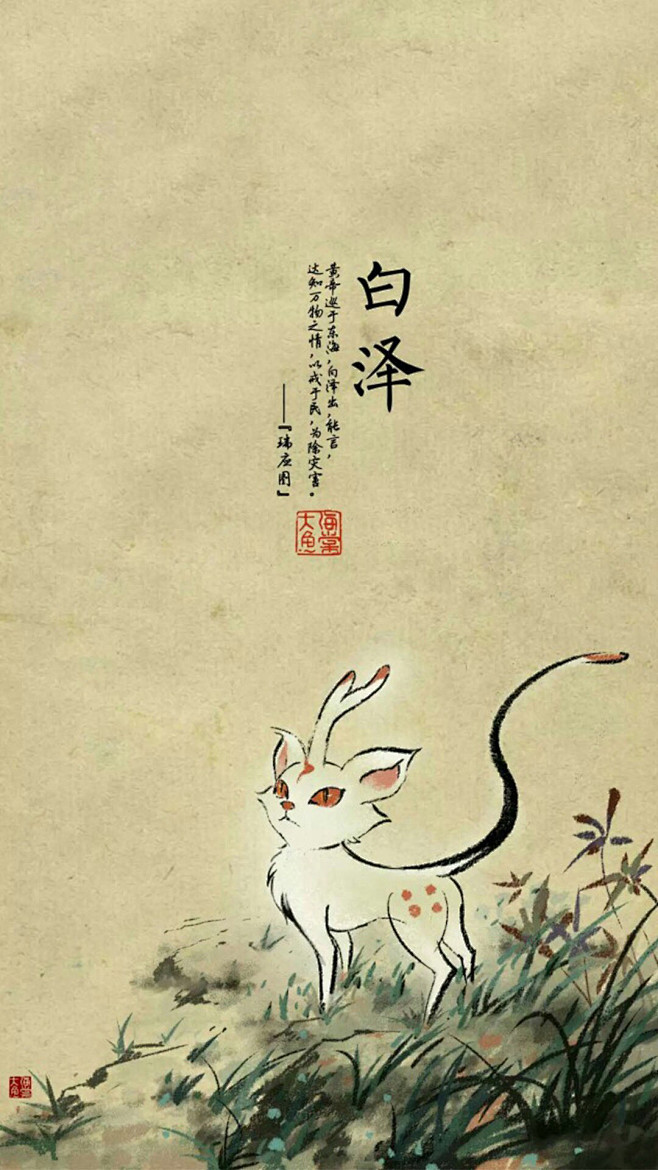 白泽
黄帝巡于东海，白泽出，能言，
达知万物之情，以戒于民，为除灾害。
——『瑞应图』
大鱼海棠
大鱼海棠